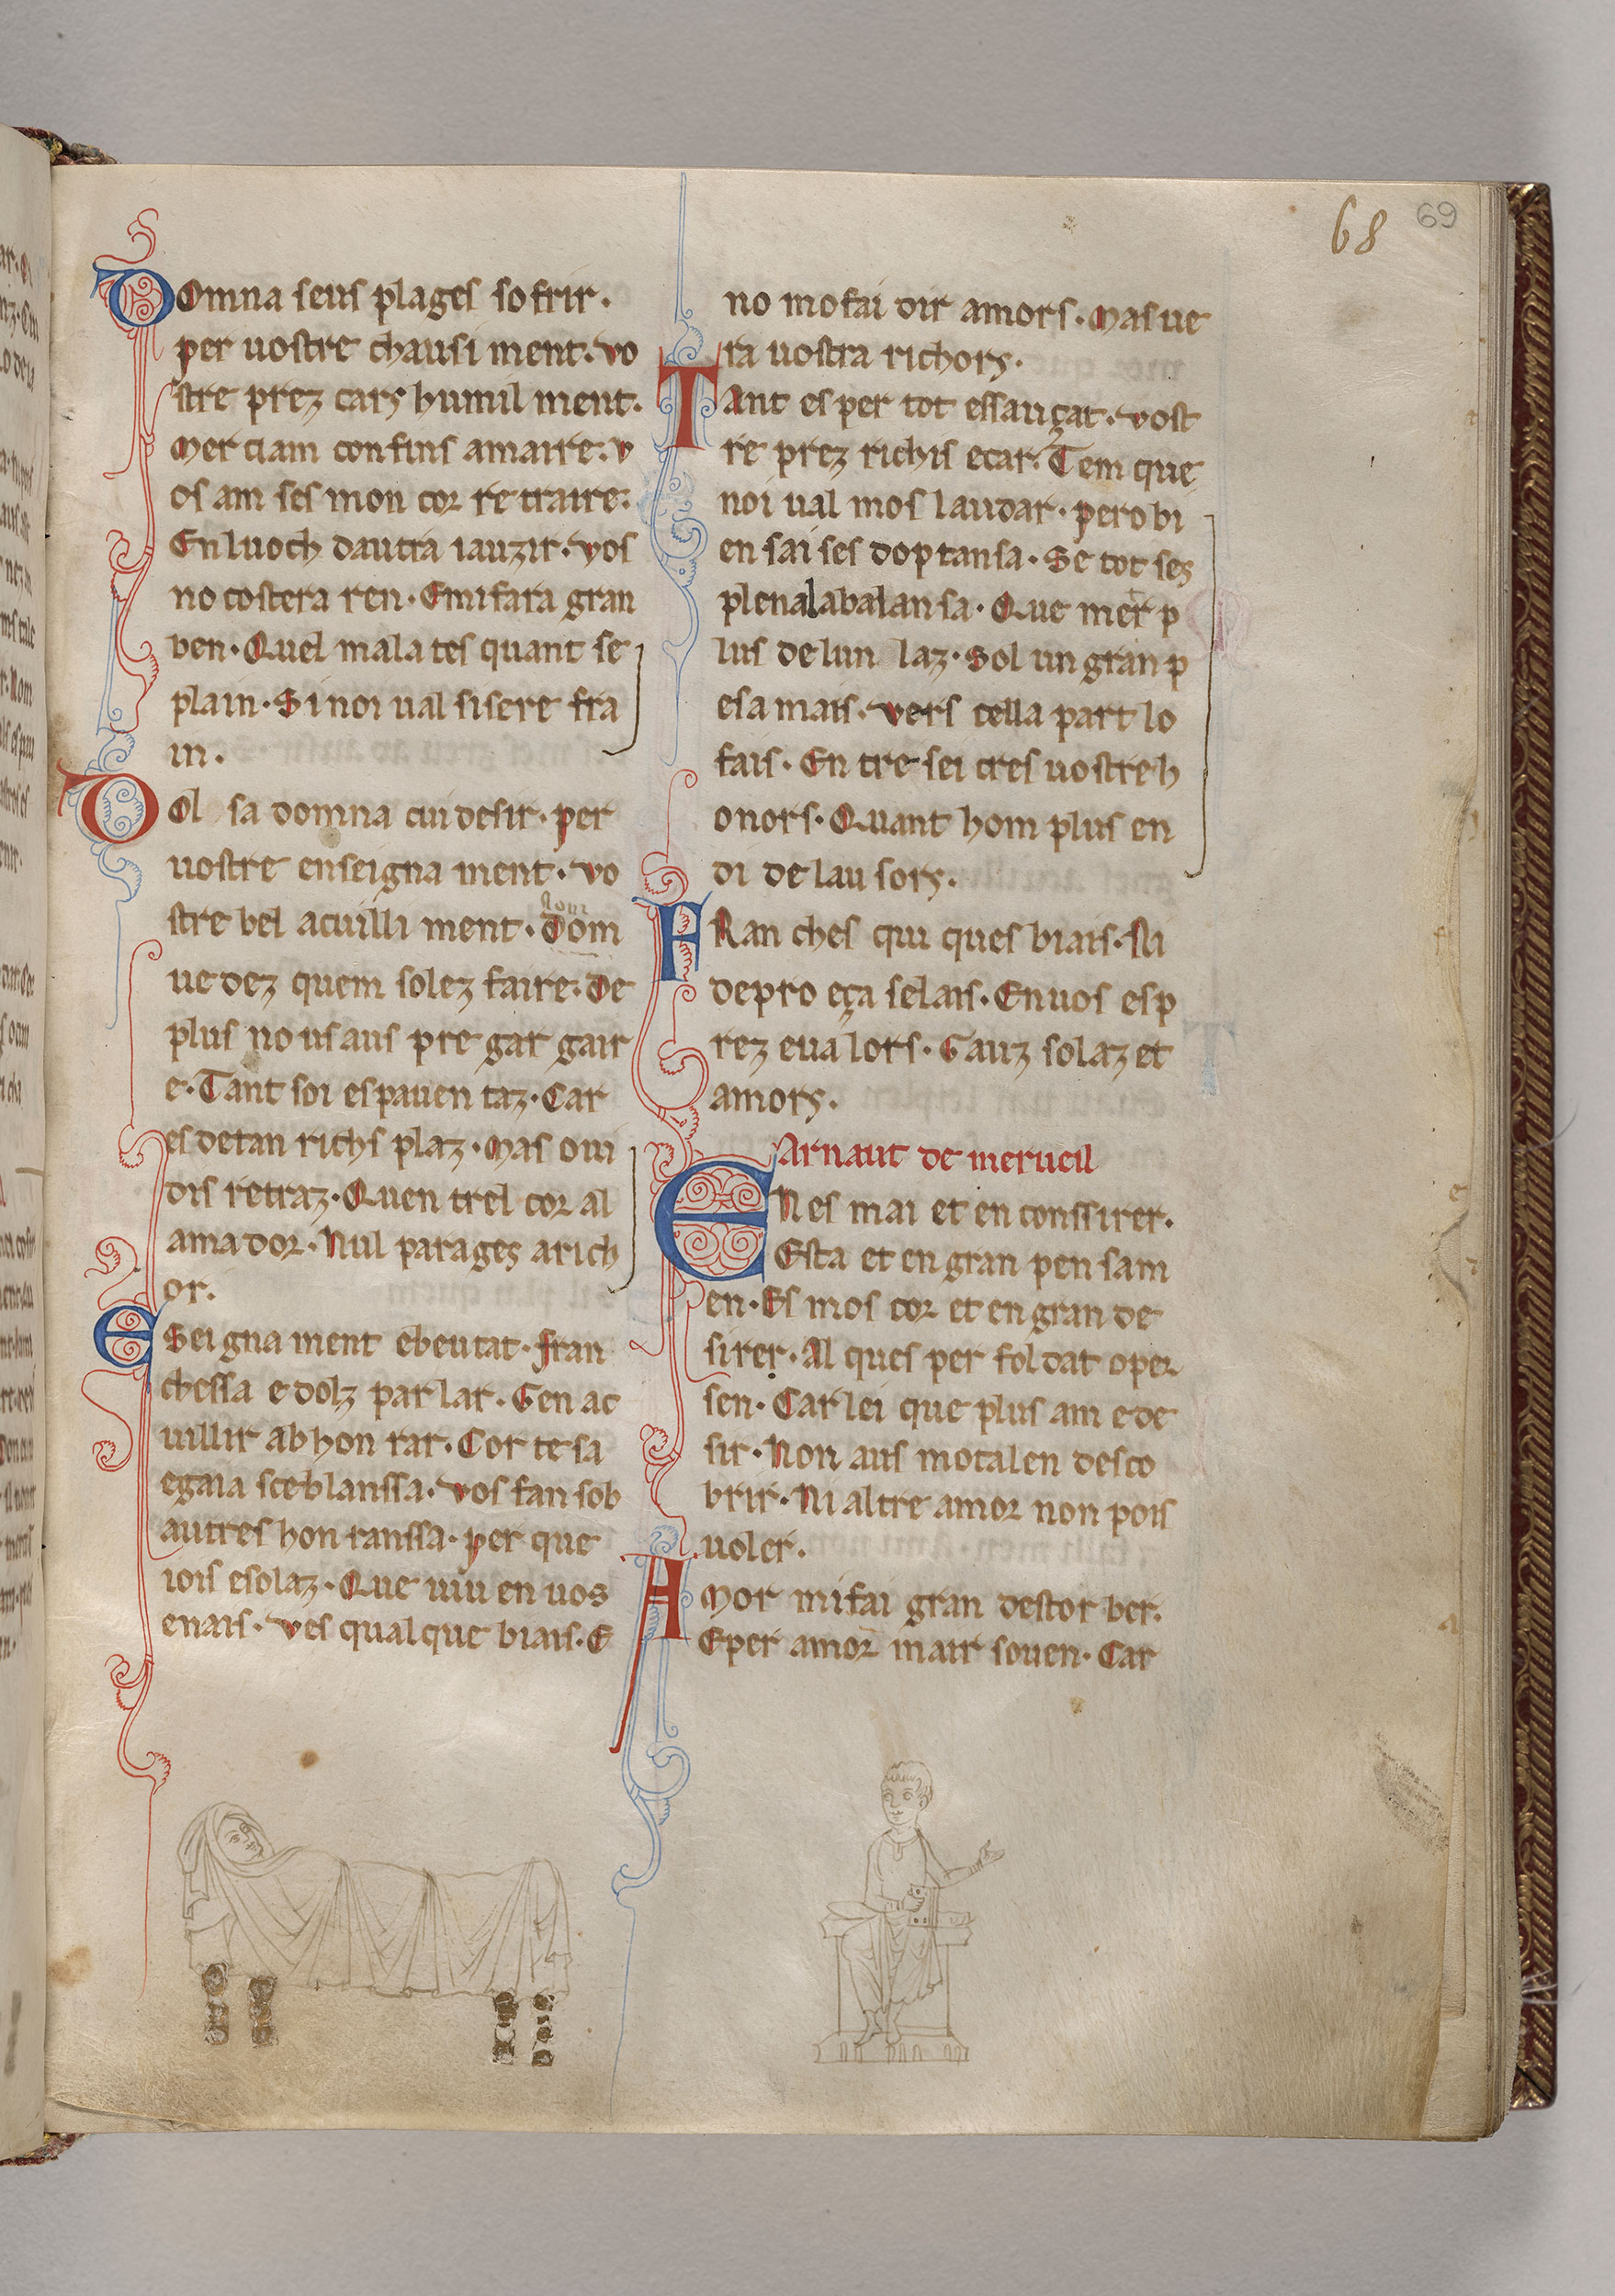 68
69
DOmna seus plages sofrir.
per uostre chausi ment. vo
stre prez cars humil ment.
Mer clam con fins amaire. v
os am ses mon cor re traire.
En luoch dautra iauzir. vos
no costera ren. Emi fara gran
ben. Quel mala tes quant se
plain. Si noi ual si sere fra
in.
DOl sa domna cui desir. per
uostre enseigna ment. vo
stre bel acuilli ment. Dom
ue dez quem solez faire. De
plus no us aus pre gar gair
e. Tant soi espauen taz. Car
es de tan richs plaz. Mas oui
dis retraz. Quen trel cor al
ama dor. Nul parages a rich
or.
ESeigna ment ebeutat. fran
chessa e dolz par lar. Gen ac
uillir ab hon rar. Cor te sa
egaia sceblanssa. vos fan sob
autres hon ranssa. per que
iois esolaz. Que uiu en uos
enais. ves qual que biais. E
no mo fai dir amors. Mas ue
ra uostra richors.
TAnt es per tot essauçat. vost
re prez richis ecar. Tem que
noi ual mos laudar. pero bi
en sai ses doptansa. Se tot ses
plenalabalansa. Que mer p
lus de lun laz. Sol un gran p
esa mais. vers cella part lo
fais. En tre sei cres uostre h
onors. Quant hom plus en
di de lau sors.
FRan ches qui ques biais. Ni
depro eça selais. En uos es p
rez eua lors. Gauz solaz et
amors.
Arnaut de merueil
ENes mai et en conssirer.
Esta et en gran pen sam
en. Es mos cor et en gran de
sirer. Al ques per fol dat o per
sen. Car lei que plus am e de
sir. Non aus mo talen desco
brir. Ni altre amor non pois
uoler.
AMor mi fai gran destor ber.
E per amor mair souen. Car